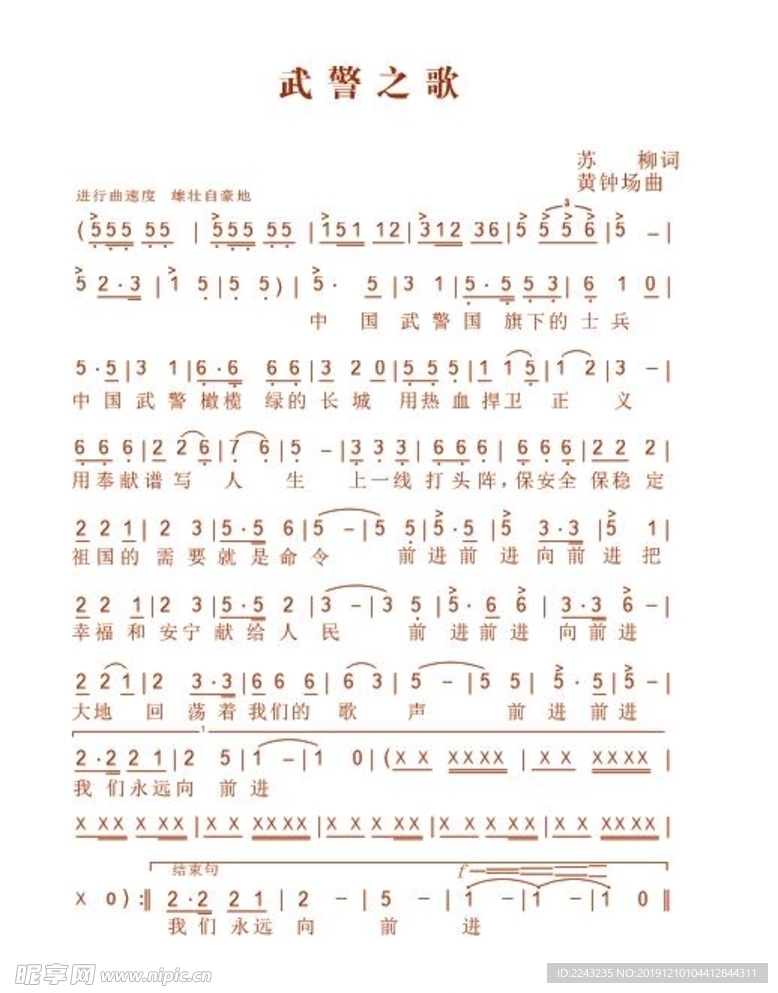 武警之歌
苏 柳词
黄钟场曲
进行曲速度 雄壮自豪地
(555 55 | 555 55 | 151 12 | 312 36 | 5 5 5 6 | 5 – |
3
5 2·3 | 1 5 | 5 5) | 5· 5 | 3 1 | 5·5 5 3 | 6 1 0 |
中 国 武 警 国 旗下的 士 兵
5·5 | 3 1 | 6·6 6 6 | 3 2 0 | 5 5 5 | 1 1 5 | 1 2 | 3 – |
中 国 武 警 橄榄 绿的 长 城 用热 血 捍卫 正 义
6 6 6 | 2 2 6 | 7 6 | 5 – | 3 3 3 | 6 6 6 | 6 6 6 | 2 2 2 |
用奉献谱写 人 生 上一线 打头阵,保安全 保稳 定
2 2 1 | 2 3 | 5·5 6 | 5 – | 5 5 | 5·5 | 5 3·3 | 5 1 |
祖国的 需 要 就 是 命 令 前 进前 进 向 前 进 把
2 2 1 | 2 3 | 5·5 2 | 3 – | 3 5 | 5·6 6 | 3·3 6 – |
幸福 和 安宁 献 给 人 民 前 进前进 向 前进
2 2 1 | 2 3·3 | 6 6 6 | 6 3 | 5 – | 5 5 | 5·5 | 5 – |
大地 回 荡着 我们的 歌 声 前 进 前进
1
2·2 2 1 | 2 5 | 1 – | 1 0 | (X X XXXX | X X XXXX |
我 们永远向 前进
X XX X XX | X X XXXX | X XX X XX | X XX X XX | X X XXXX |
结束句 f
X 0) :‖ 2·2 2 1 | 2 – | 5 – | 1 – | 1 – | 1 0 ‖
我们 永远 向 前 进
昵享网 www.nipic.cn
ID:2243235 NO:20191210104412844311